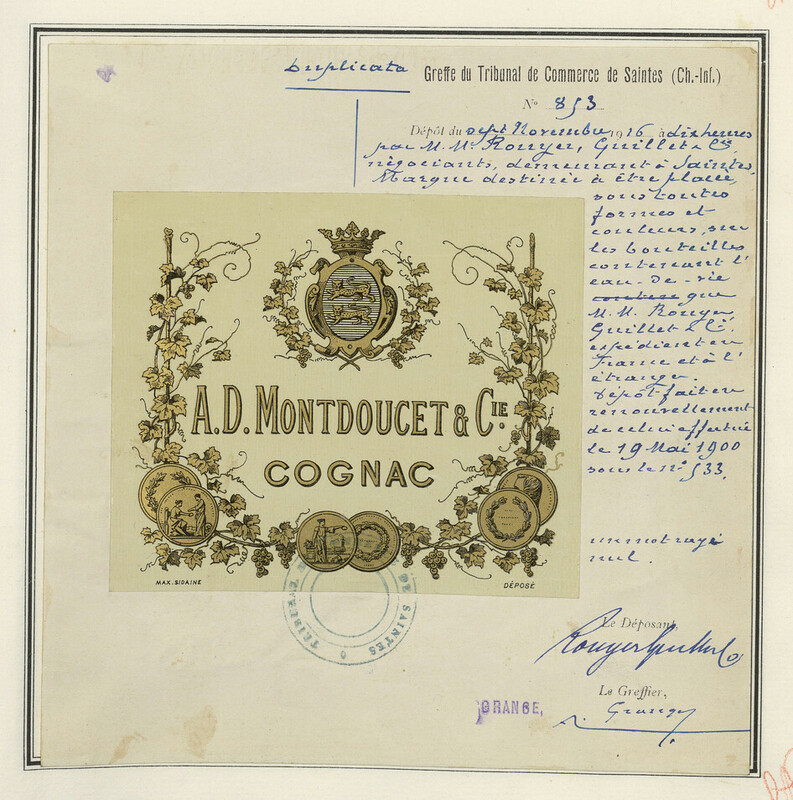 Duplicata
Greffe du Tribunal de Commerce de Saintes (Ch.-Inf.)
N° 853
Dépôt du sept Novembre 1916 à dix heures
par M. M. Rouyer, Guillet & Cie
négociants, demeurant à Saintes.
Marque destinée à être placée,
sous toutes
formes et
couleurs, sur
les bouteilles
contenant l'
eau-de-vie
que
M. M. Rouyer
Guillet & Cie
expédient en
France et à l'
étranger.
Dépôt fait en
renouvellement
de celui effectué
le 19 Mai 1900
sous le n° 533.
un mot rayé
nul.
A.D. MONTDOUCET & CIE.
COGNAC
MAX. SIDAINE
DÉPOSÉ
DE SAINTES
Le Déposant,
Rouyer Guillet & Co
Le Greffier,
GRANGE,
Grange